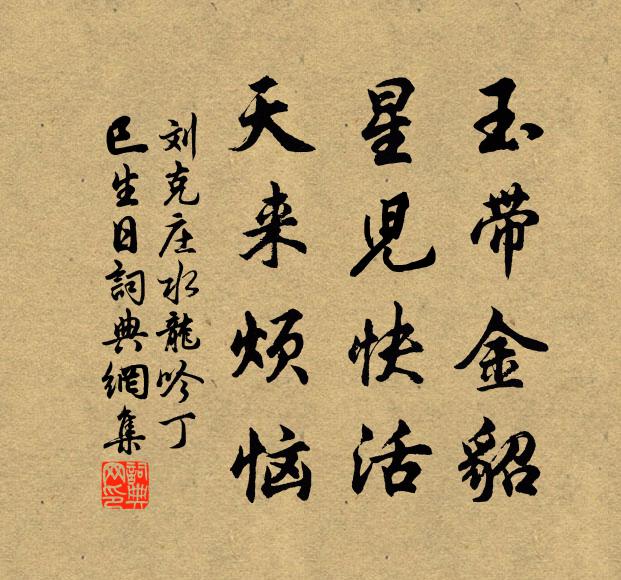 玉带金貂
星児快活
天来烦恼
刘克庄水龍吟丁
巳生日詞典網集
詞典网印